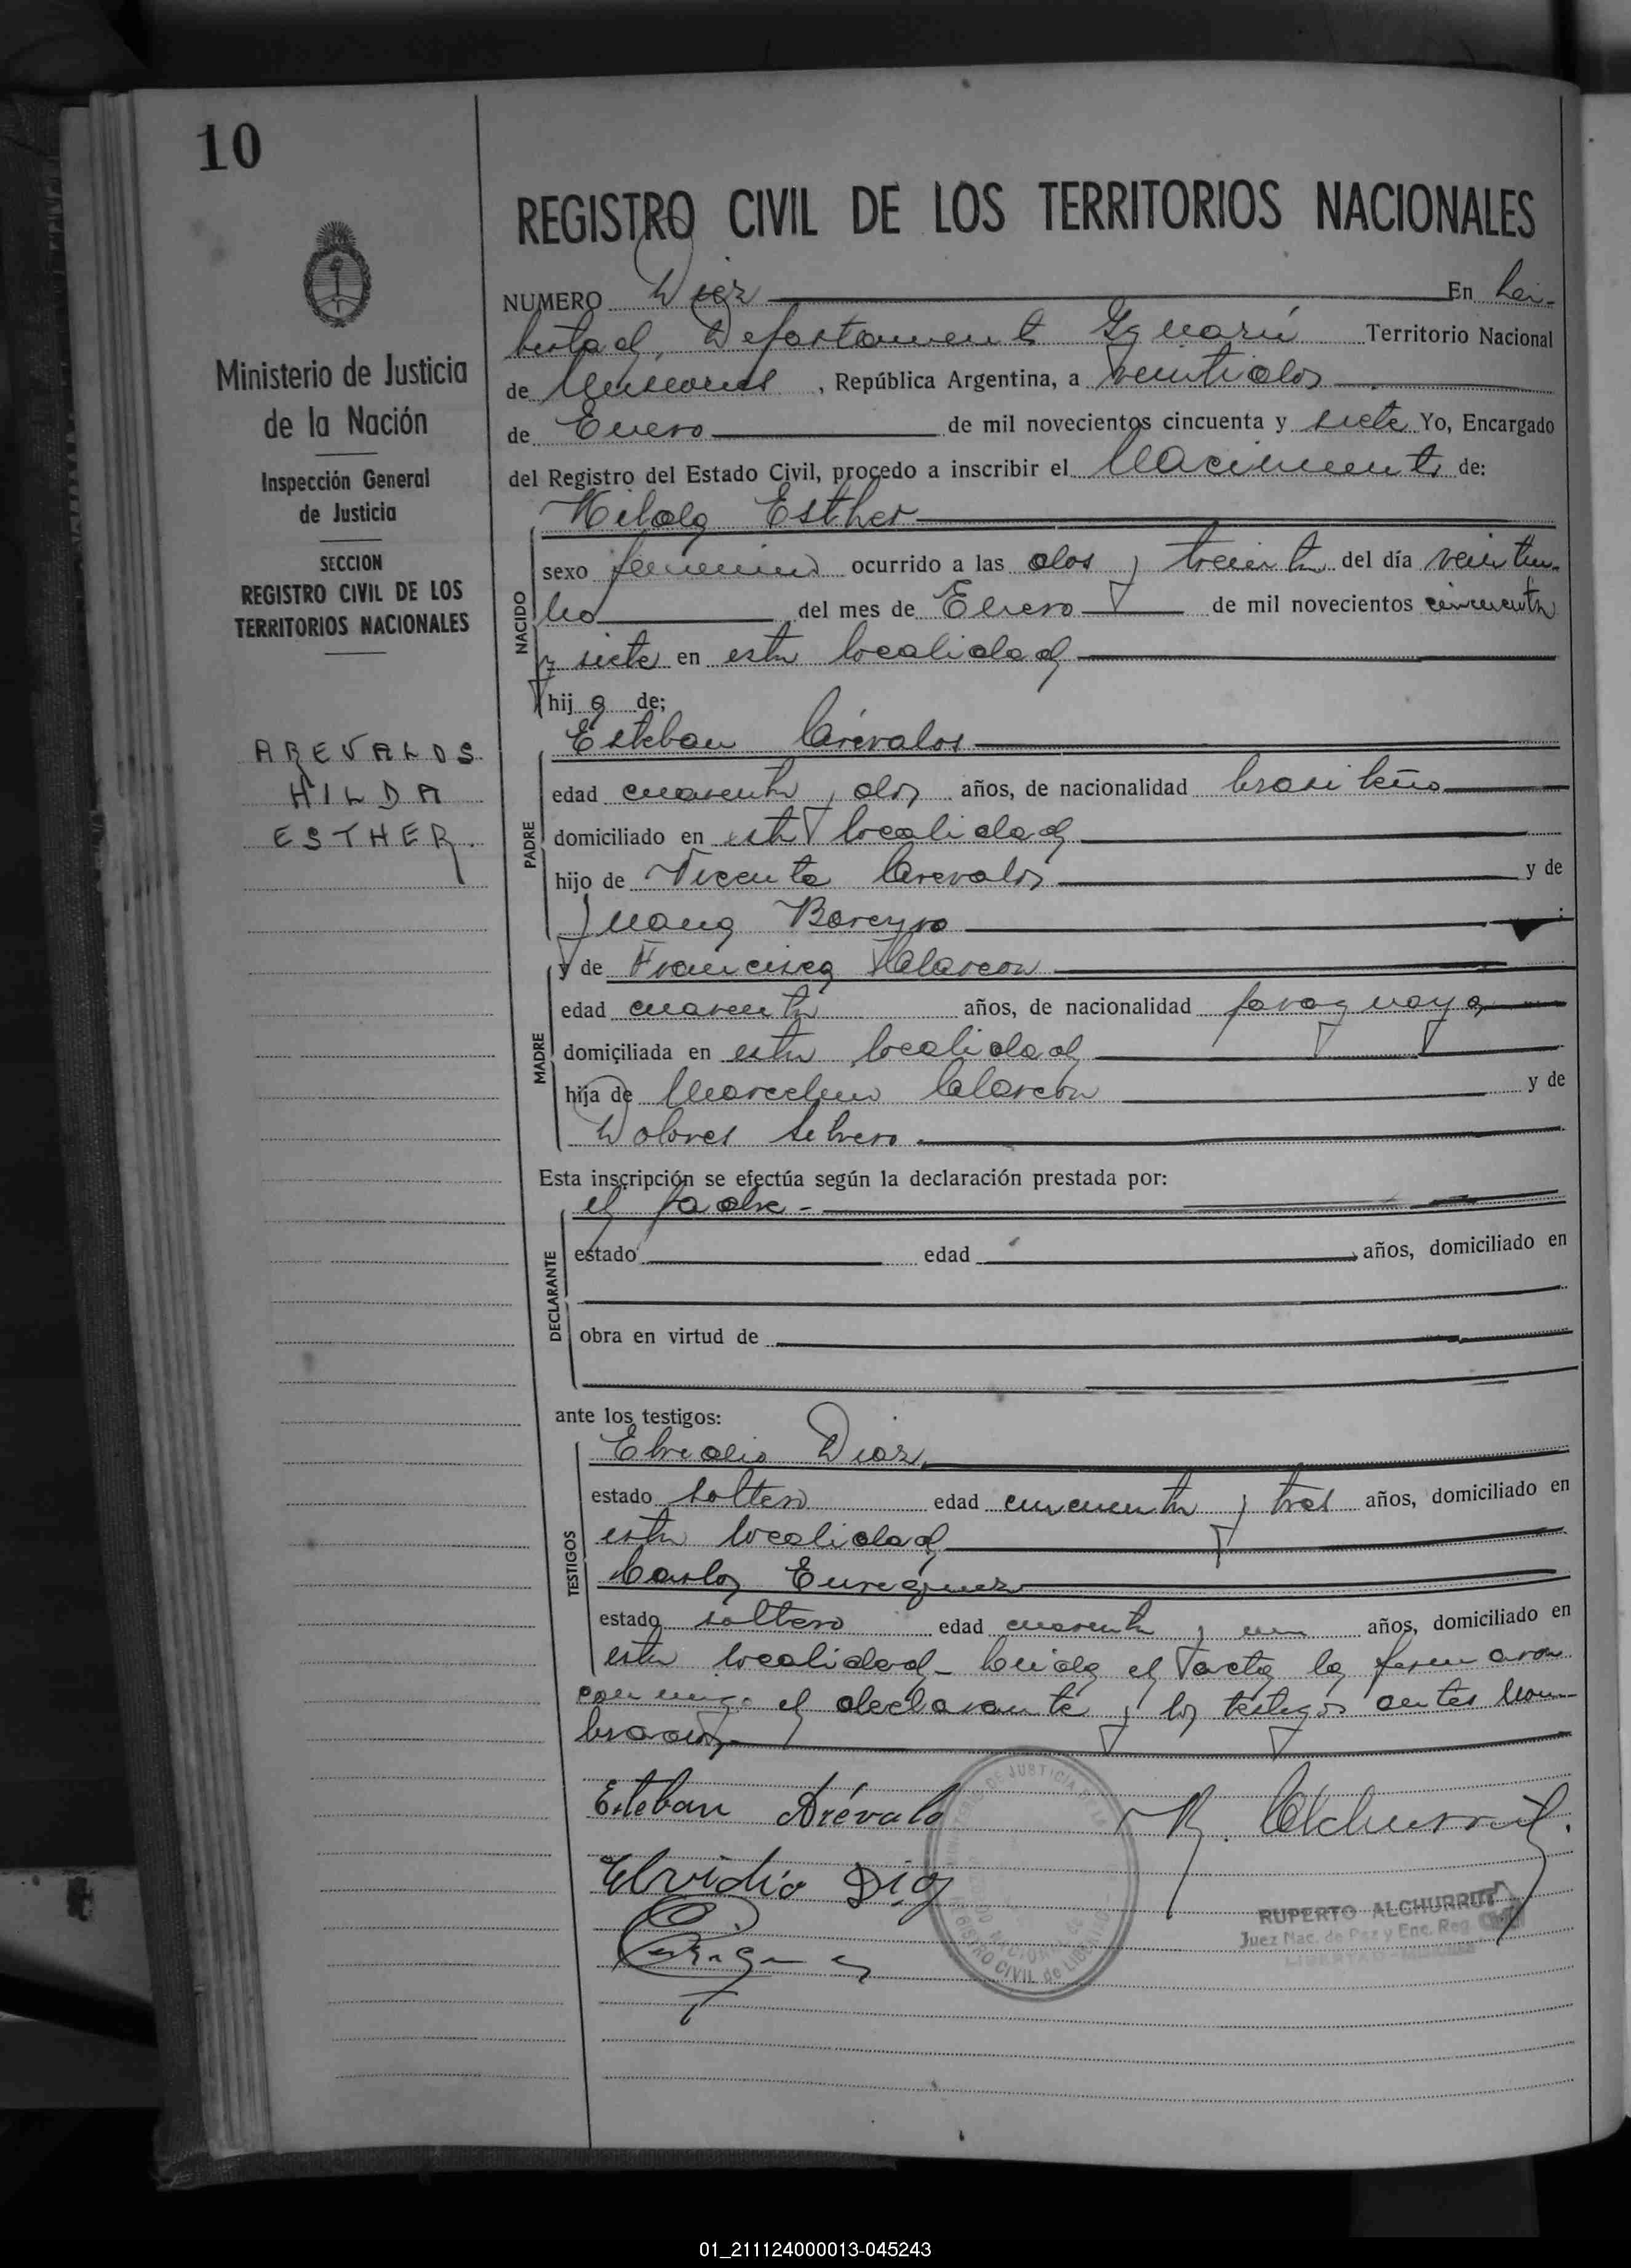 10
REGISTRO CIVIL DE LOS TERRITORIOS NACIONALES
Ministerio de Justicia
de la Nación
Inspección General
de Justicia
SECCION
REGISTRO CIVIL DE LOS
TERRITORIOS NACIONALES
AREVALOS
HILDA
ESTHER.
NUMERO Diez En Li-
bertad, Departamento Iguazú Territorio Nacional
de Misiones, República Argentina, a veintidos
de Enero de mil novecientos cincuenta y siete Yo, Encargado
del Registro del Estado Civil, procedo a inscribir el Nacimiento de:
NACIDO
Hilda Esther
sexo femenino ocurrido a las dos y treinta del día veintiu-
no del mes de Enero de mil novecientos cincuenta
y siete en esta localidad
hija de;
PADRE
Esteban Arévalos
edad cuarenta y dos años, de nacionalidad brasileño
domiciliado en esta localidad
hijo de Vicente Arevalos y de
Juana Bareyro
MADRE
y de Francisca Alarcon
edad cuarenta años, de nacionalidad paraguaya
domiciliada en esta localidad
hija de Marcelino Alarcón y de
Dolores
Esta inscripción se efectúa según la declaración prestada por:
DECLARANTE
el padre-
estado edad años, domiciliado en
obra en virtud de
ante los testigos:
TESTIGOS
Elvidio Diaz
estado soltero edad cincuenta y tres años, domiciliado en
esta localidad
Carlos Enrequez
estado soltero edad cuarenta y un años, domiciliado en
esta localidad- Leida el acta la firmaron
conmigo el declarante y los testigos antes nom-
brados
Esteban Arévalo
R. Alchurrut.
Elvidio Diaz
MINISTERIO DE JUSTICIA DE LA
REGISTRO CIVIL de LIBERTAD
RUPERTO ALCHURRUT
Juez Nac. de Paz y Enc. Reg. Civil
LIBERTAD - MISIONES
01_211124000013-045243